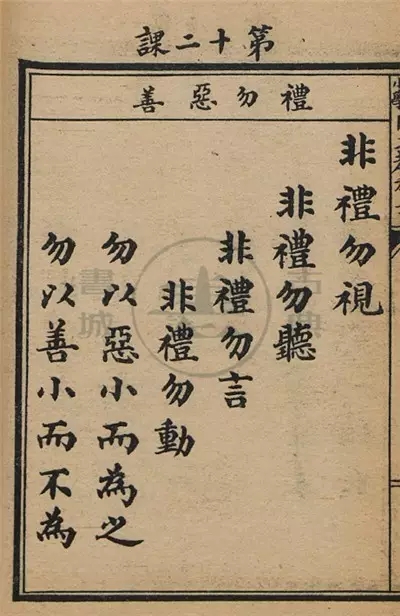 第十二課
禮勿惡善
非禮勿視
非禮勿聽
非禮勿言
非禮勿動
勿以惡小而為之
勿以善小而不為
書城
古典